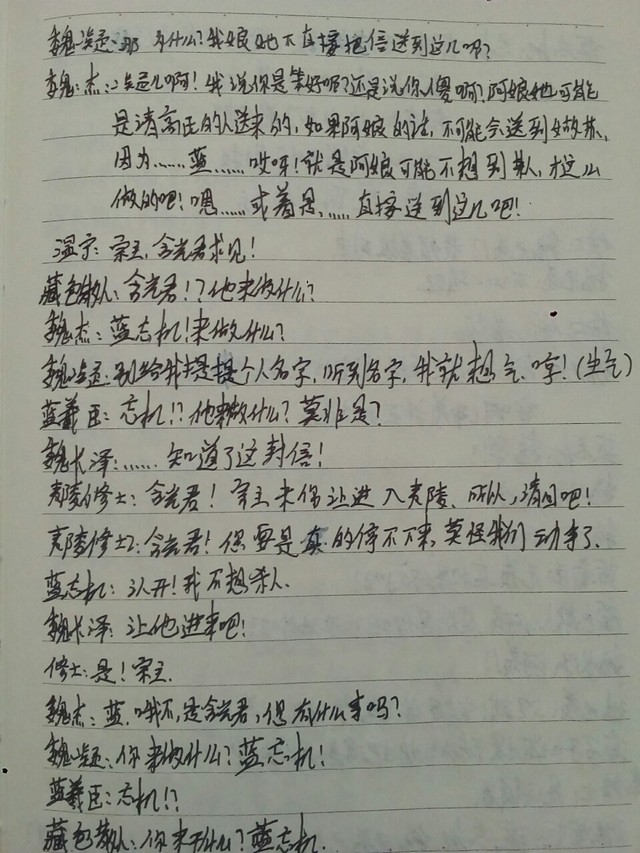 魏婴:那 为什么?我娘她不直接把信送到这儿呢?
魏杰:婴儿啊!我说你是笨好呢?还是说你傻啊?阿娘她可能
是请高正的人送来的,如果阿娘的话,不可能会送到姑苏,
因为……蓝……哎呀!就是阿娘可能不想到别人,才这么
做的吧!嗯……或着是……直接送到这儿吧!
温宁:宗主,含光君求见!
藏色散人:含光君!?他来做什么?
魏杰:蓝忘机!来做什么?
魏婴:别给我提个人名字,听到名字,我就想气.哼!(生气)
蓝羲臣:忘机!?他来做什么?莫非是?
魏长泽:……知道了这封信!
夷陵修士:含光君!宗主未你让进入夷陵.所以,请回吧!
夷陵修士2:含光君!您要是真的停不下来,莫怪我们动手了.
蓝忘机:让开!我不想杀人.
魏长泽:让他进来吧!
修士:是!宗主.
魏杰:蓝.哦不,是含光君,您有什么事吗?
魏婴:你来做什么?蓝忘机!
蓝羲臣:忘机!?
藏色散人:你来干什么?蓝忘机.